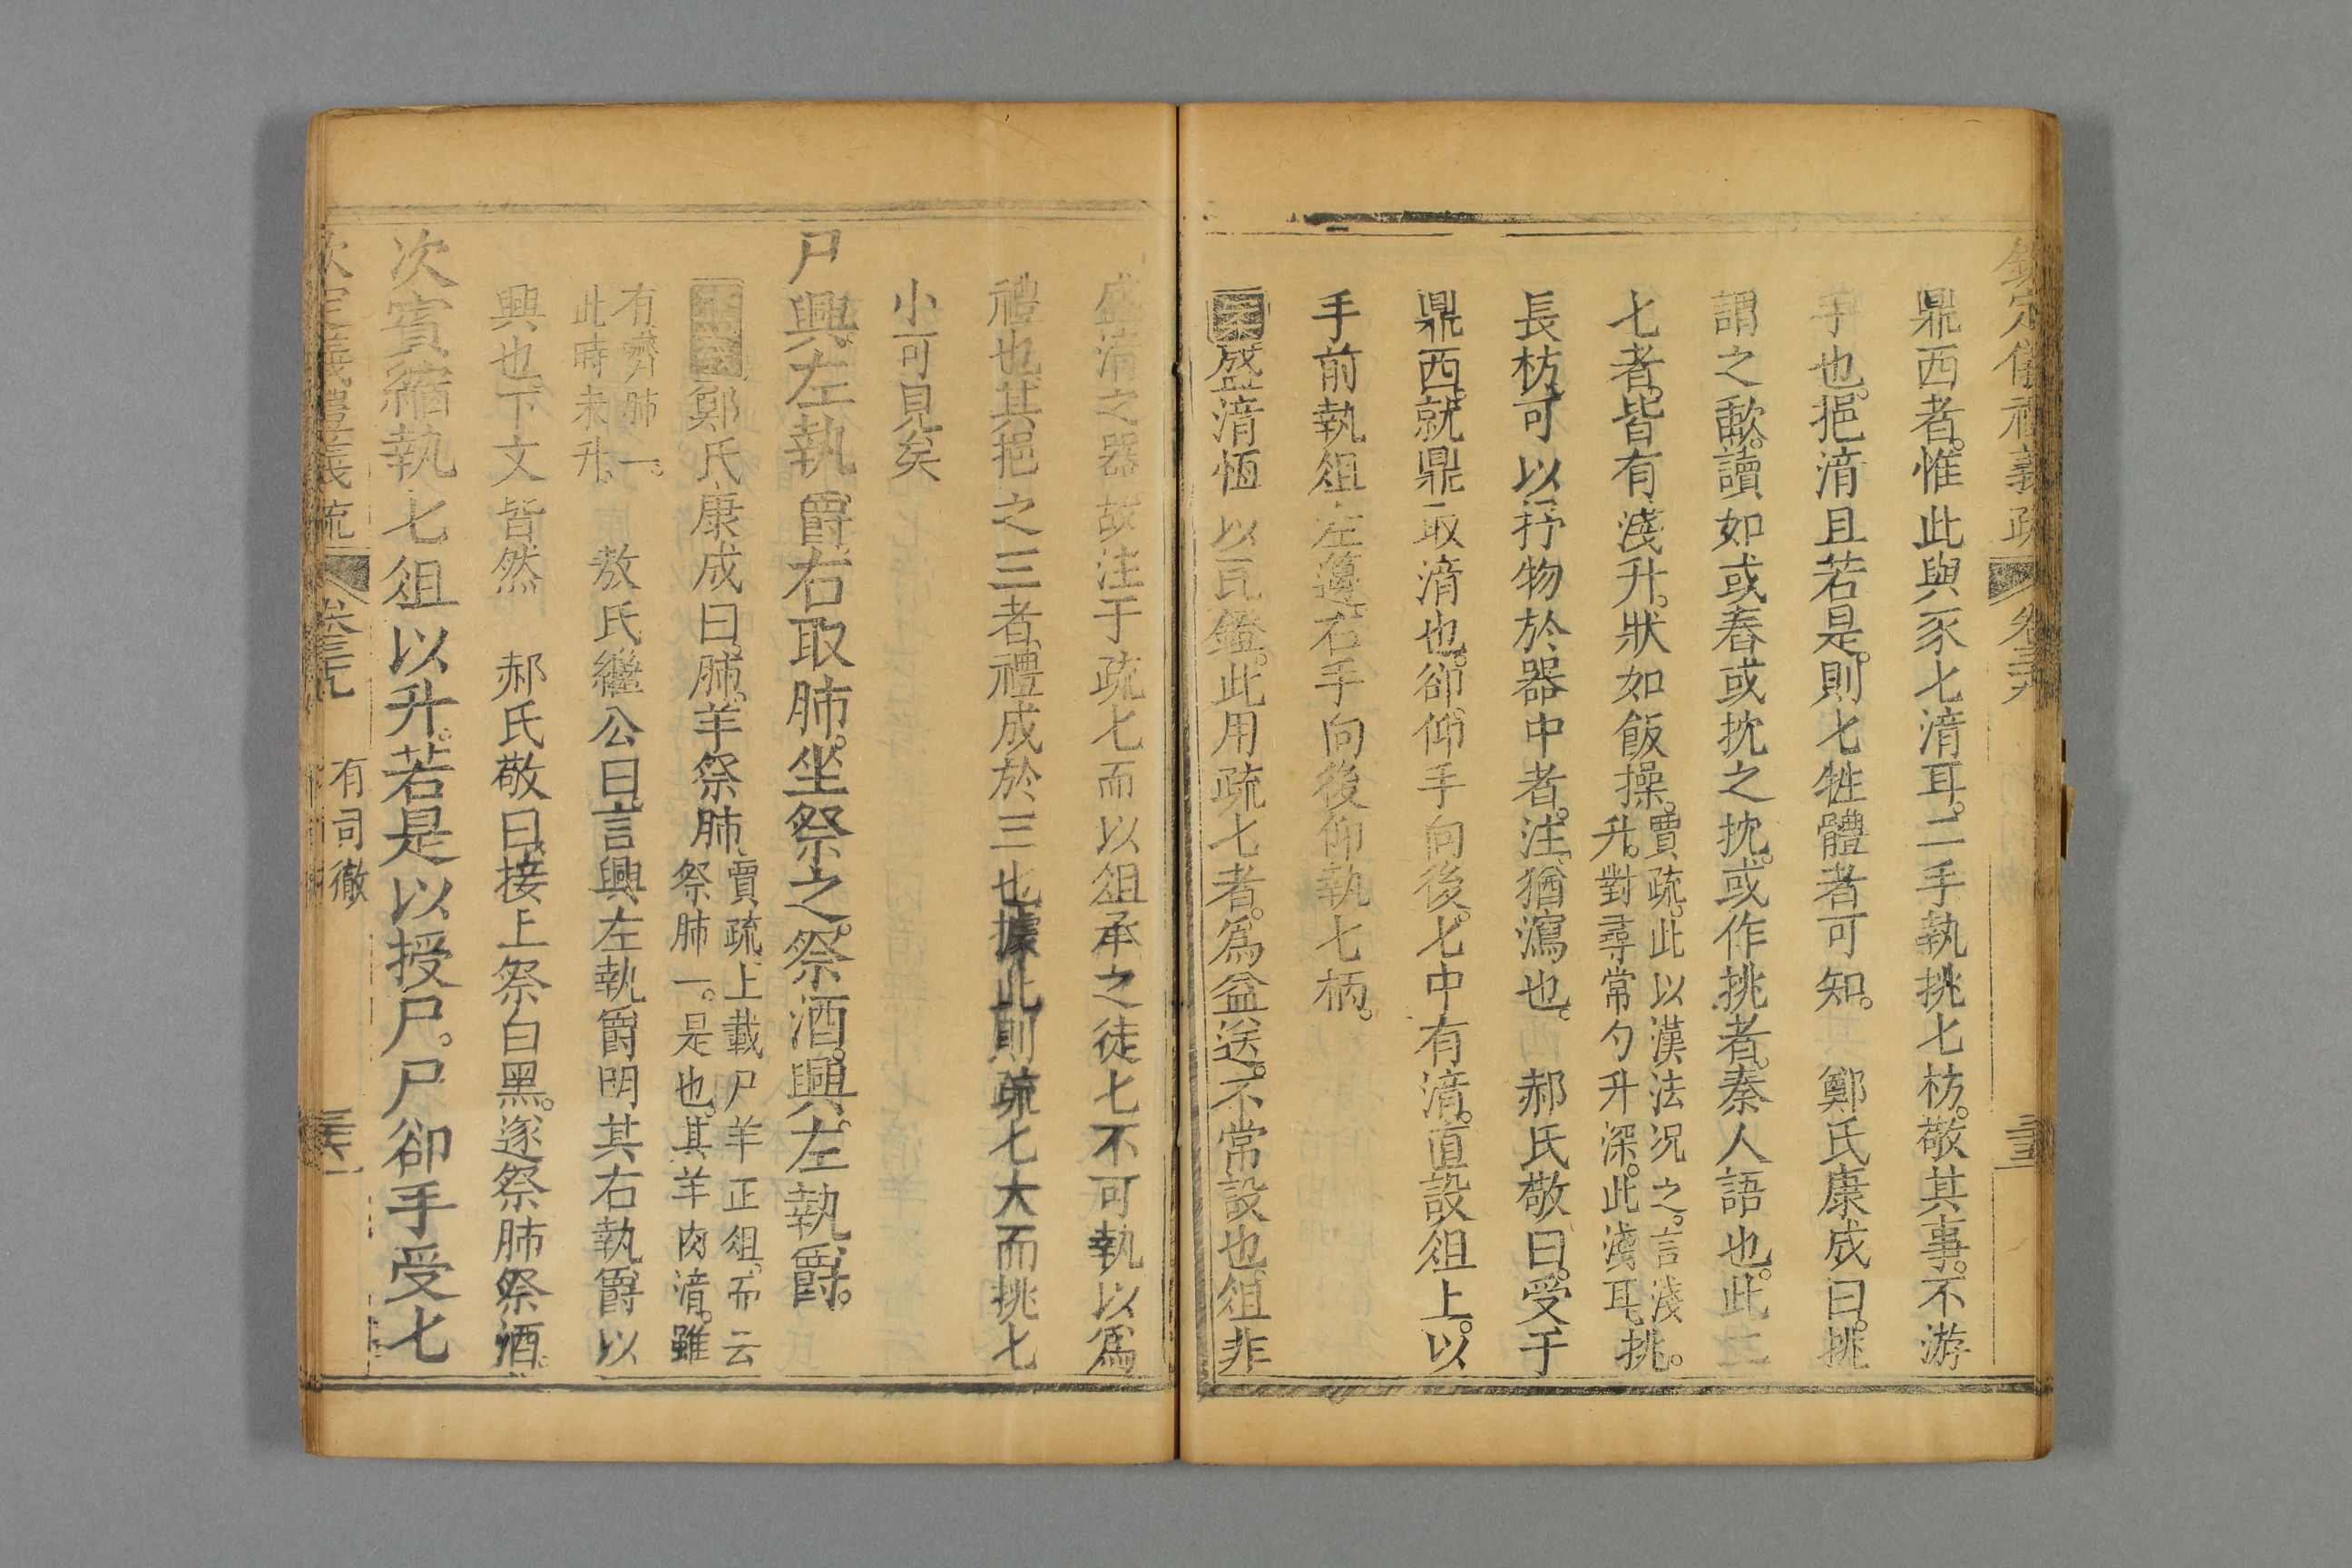 欽定儀禮義疏 卷三十九 三十五
鼎西者。惟此與豕匕湆耳。二手執挑匕枋。敬其事。不游
手也。挹湆且若是。則匕牲體者可知。 鄭氏康成曰。挑
謂之歃。讀如或舂或抌之抌。或作挑者。秦人語也。此二
匕者。皆有淺升。狀如飯橾。
賈疏。此以漢法況之。言淺
升。對尋常勺升深。此淺耳。
挑。
長枋。可以抒物於器中者。注。猶瀉也。 郝氏敬曰。受于
鼎西。就鼎取湆也。卻。仰手向後。匕中有湆。直設俎上。以
手前執俎左。簿右手向後仰執匕柄。
案盛湆恆以瓦鐙。此用疏匕者。爲益送。不常設也。俎非
盛湆之器。故注于疏匕而以俎承之。徒匕不可執以爲
禮也。其挹之三者。禮成於三也。據此則疏匕大而挑匕
小可見矣
尸興。左執爵。右取肺。坐祭之。祭酒。興。左執爵。
鄭氏康成曰。肺。羊祭肺。
賈疏。上載尸羊正俎。而云
祭肺一。是也。其羊肉湆。雖
有嚌肺一。
此時未升。
敖氏繼公曰。言興左執爵。明其右執爵以
興也。下文皆然 郝氏敬曰。接上祭白黑。遂祭肺祭酒。
次賓縮執匕俎以升。若是以授尸。尸卻手受匕
欽定儀禮義疏 卷三十九 有司徹 三十六